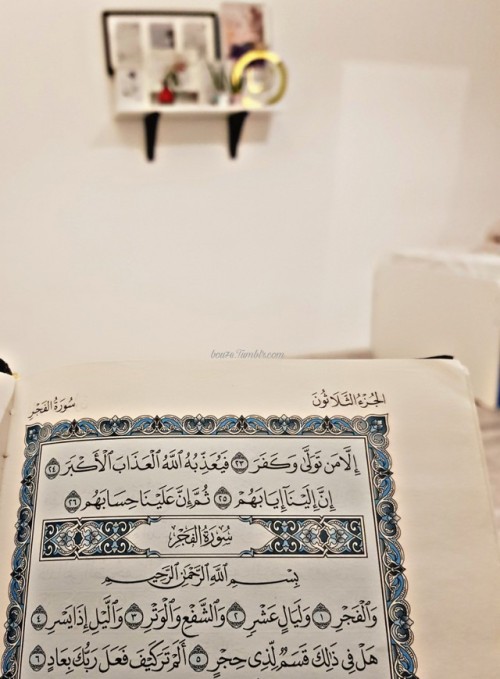 bou7s.Tumblr.com
الجزء الثلاثون
سورة الفجر
إِلَّا مَن تَوَلَّىٰ وَكَفَرَ ٢٣ فَيُعَذِّبُهُ اللَّهُ الْعَذَابَ الْأَكْبَرَ ٢٤
إِنَّ إِلَيْنَا إِيَابَهُمْ ٢٥ ثُمَّ إِنَّ عَلَيْنَا حِسَابَهُم ٢٦
سُورَةُ الفَجْرِ
بِسْمِ اللَّهِ الرَّحْمَٰنِ الرَّحِيمِ
وَالْفَجْرِ ١ وَلَيَالٍ عَشْرٍ ٢ وَالشَّفْعِ وَالْوَتْرِ ٣ وَاللَّيْلِ إِذَا يَسْرِ ٤
هَلْ فِي ذَٰلِكَ قَسَمٌ لِّذِي حِجْرٍ ٥ أَلَمْ تَرَ كَيْفَ فَعَلَ رَبُّكَ بِعَادٍ ٦